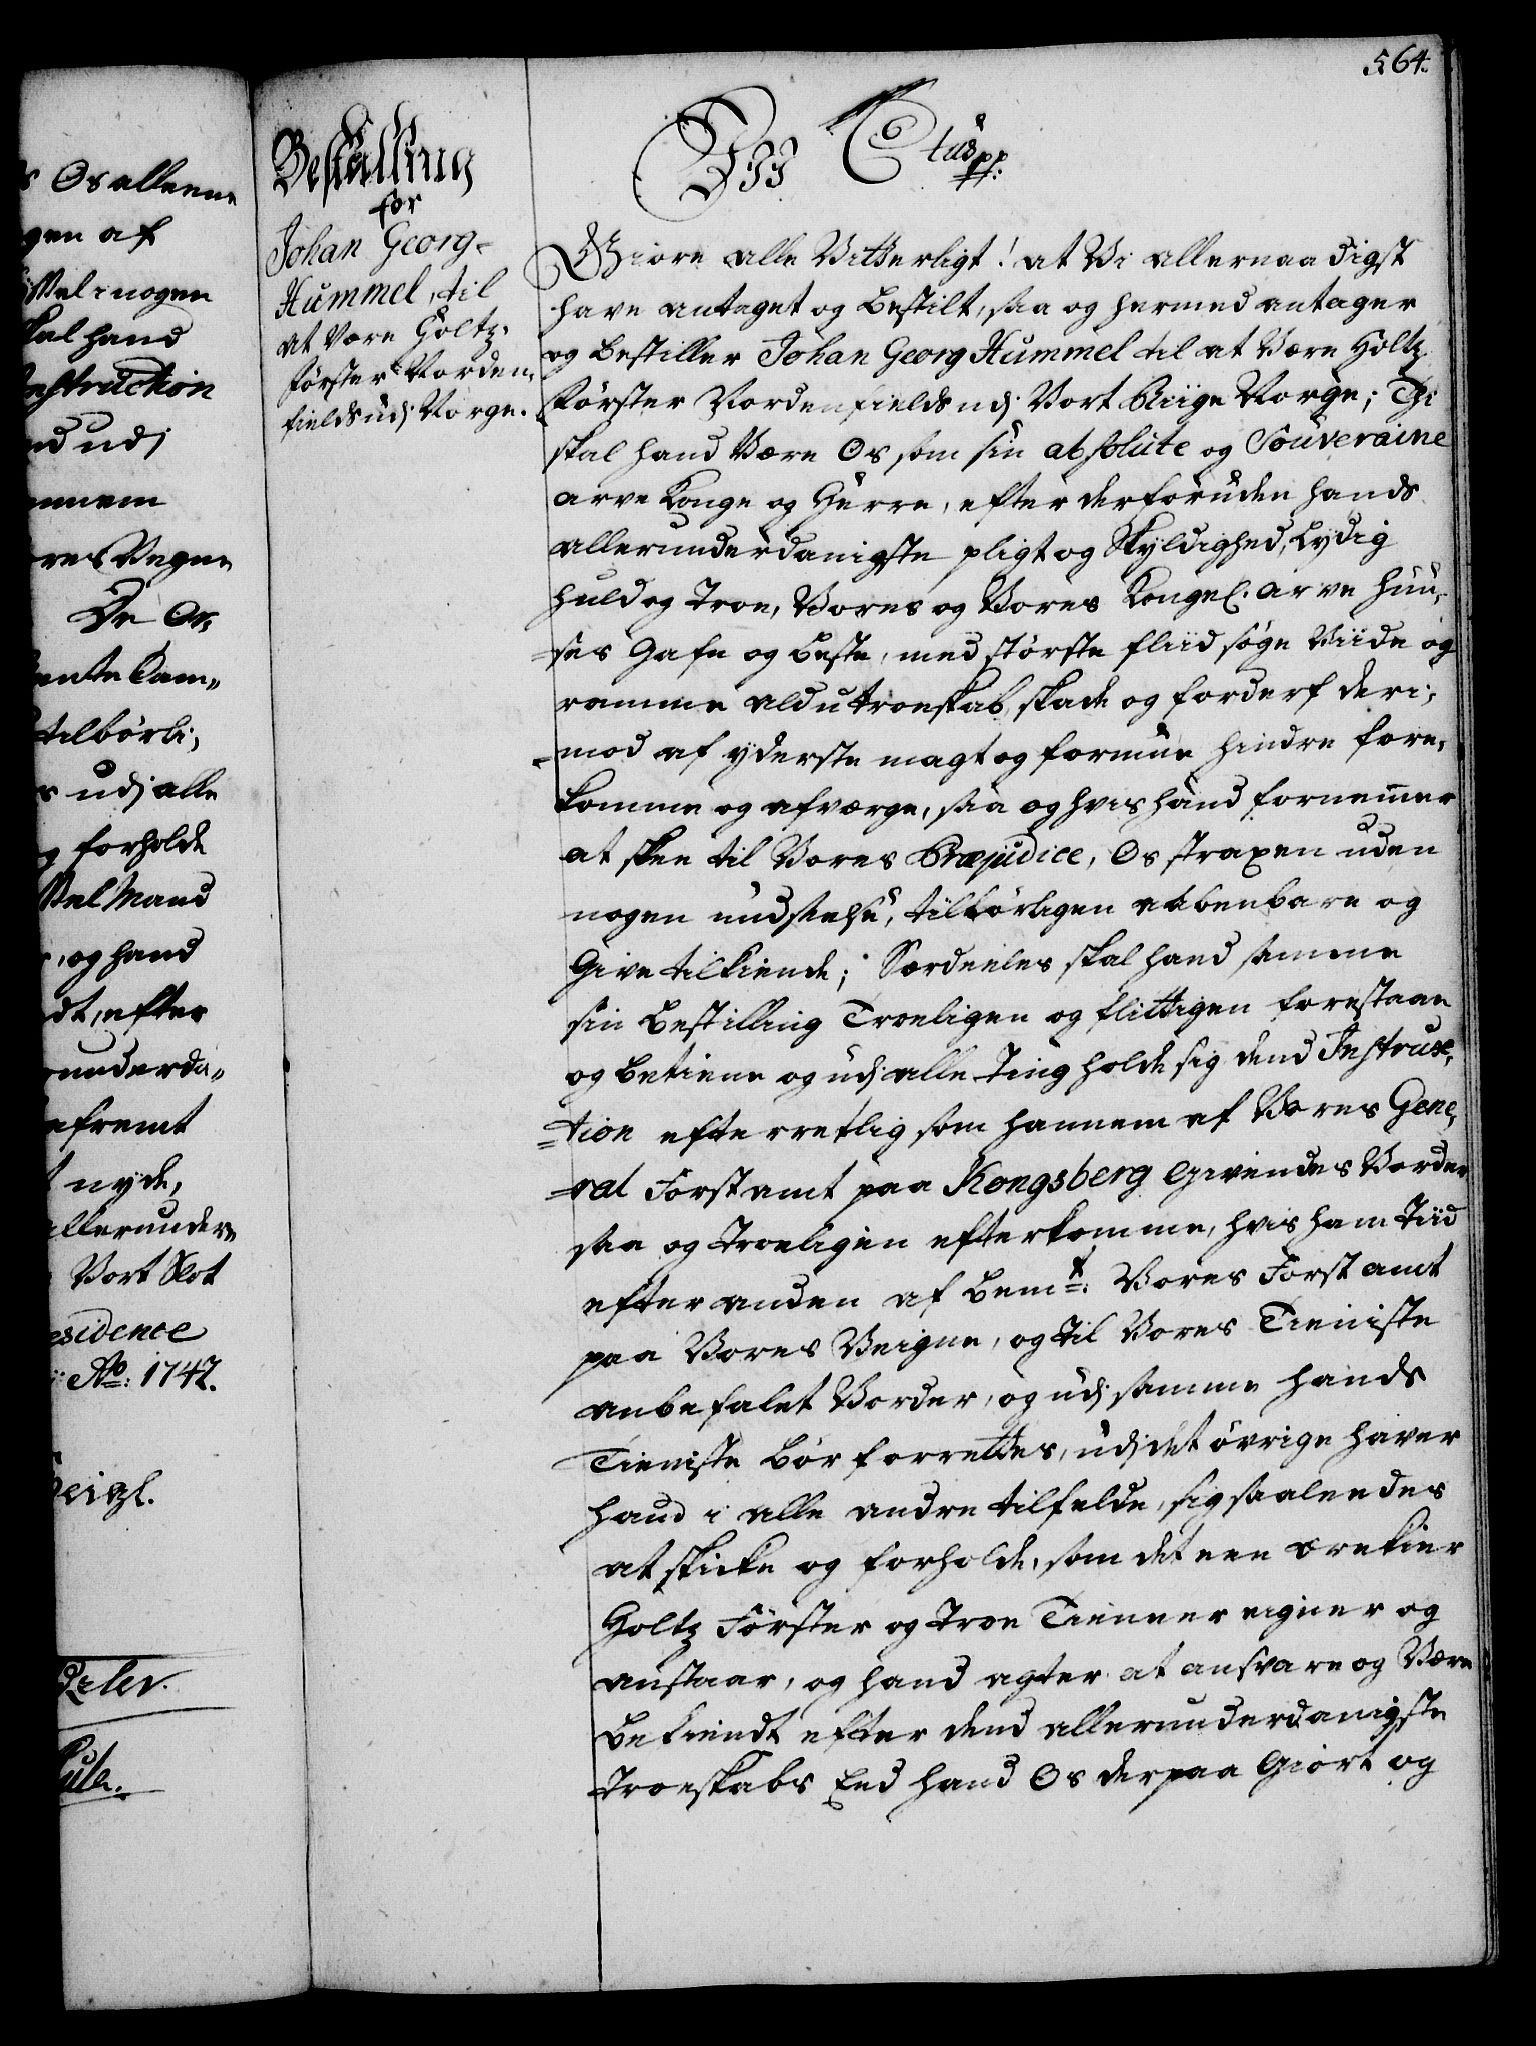 564.
s Os alleene
gen af
Vel i nogen
kal hand
Instruction
nd udj
annem
ores Vegne
De Os
ente Cam„
tilbörli„
s udj alle
g forholde
Vel Mand
, og hand
dt, efter
runderda„
efremt
t nyde,
allerunder„
Vort Slot
esidence
Ao: 1747.
Bestalling
for
Johan Georg
Hummel, til
at være Holtz
förster Norden„
fields udj Norge.
Wii C Etus pp:
Giöre alle Vitterligt! at Vi allernaadigst
have antaget og bestilt, saa og hermed antager
og bestiller Johan Georg Hummel til at være Holtz
förster Nordenfields udj Vort Riige Norge; Thi
skal hand være Os som sin absolute og Souveraine
arve Konge og Herre, efter derforuden hands
allerunderdanigste pligt og Skyldighed, Lydig
huld og troe, Vores og Vores Kongel. arve huu„
ses Gafn og beste, med störste fliid söge viide og
ramme ald utroeskab, skade og forderf deri„
mod af yderste magt og formue hindre fore„
komme og afværge, saa og hvis hand fornemmer
at skee til Vores Præjudice, Os straxen uden
nogen undseelse, tilbörligen aabenbare og
Give tilkiende; Særdeeles skal hand samme
sin bestilling Troeligen og flittigen forestaae
og betiene og udj alle ting holde sig dend Instruc„
tion efterretlig som hannem af Vores Gene„
ral Forstamt paa Kongsberg Givendes vorder
saa og troeligen efterkomme, hvis ham tiid
efter anden af bemt: Vores Forst amt
paa Vores Veigne, og til Vores Tieniste
anbefalet vorder, og udj samme hands
Tieniste bör forrettes, udj det övrige haver
hand i alle andre tilfelde, sig saaleedes
at skicke og forholde, som det een ærekier
Holtz Förster og troe Tienner eigner og
anstaar, og hand agter at ansvare og være
bekiendt efter dend allerunderdanigste
troeskabs Eed hand Os derpaa Giort og